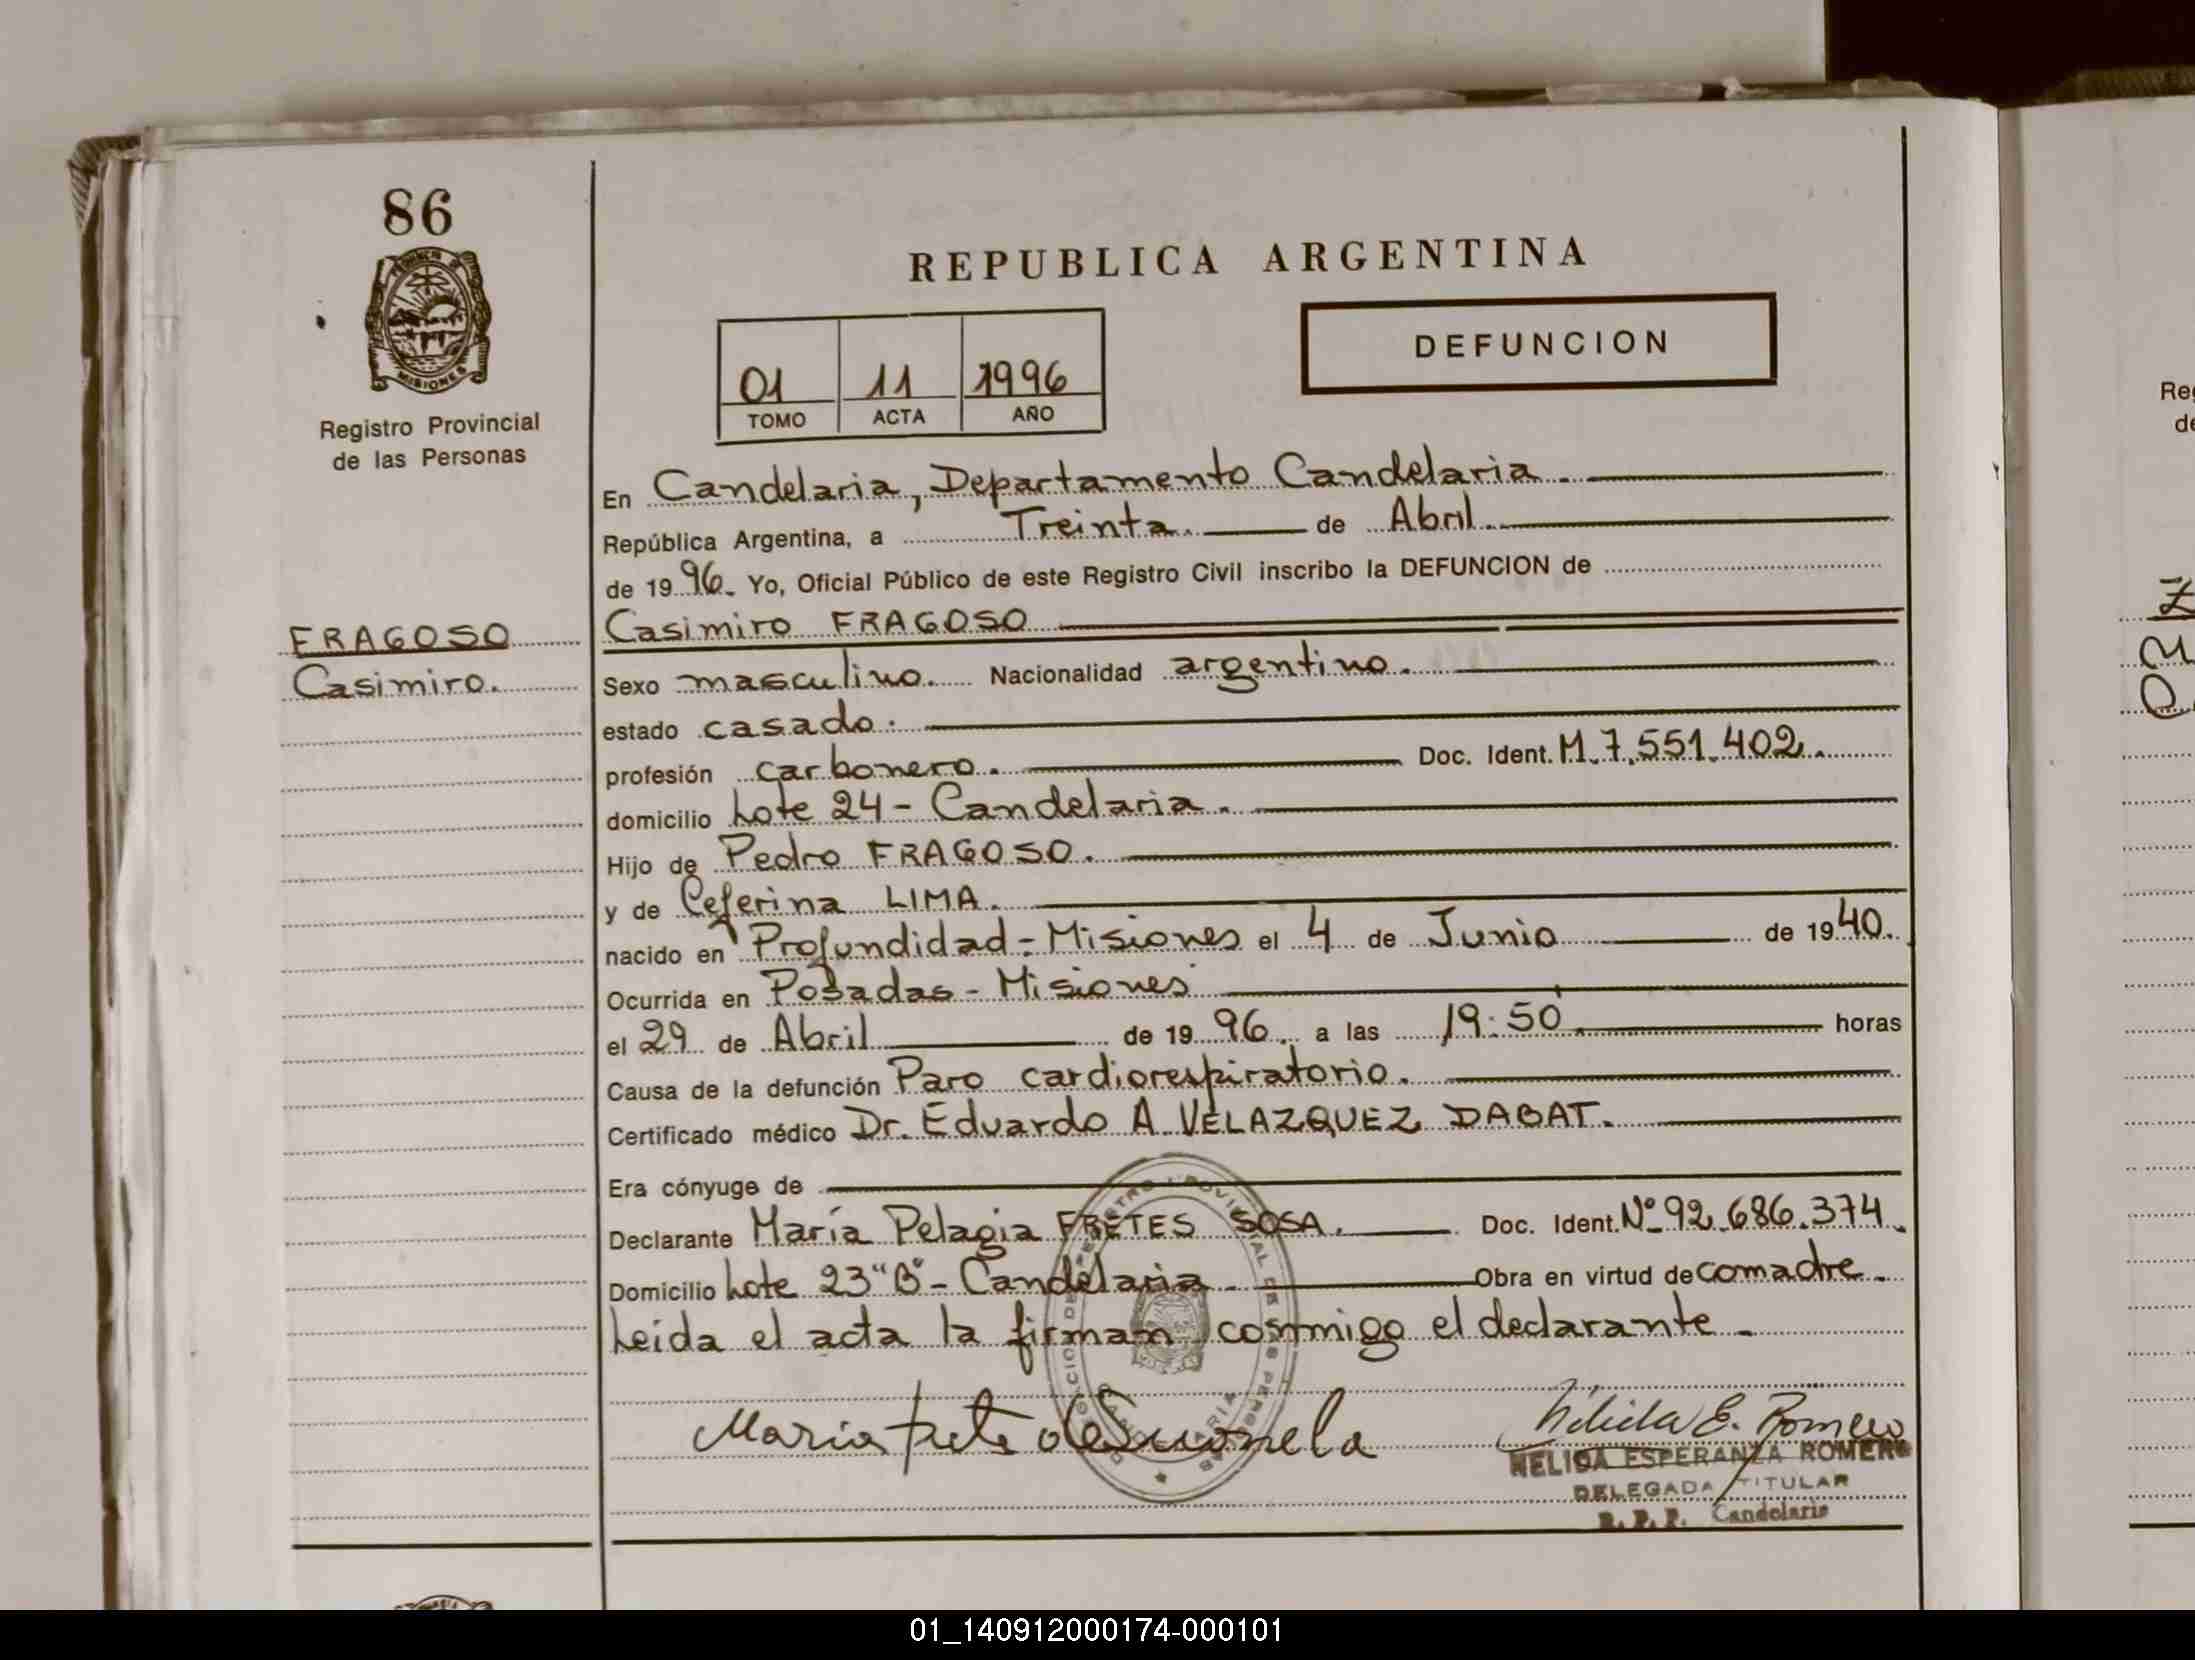 86
PROVINCIA DE
MISIONES
Registro Provincial
de las Personas
FRAGOSO
Casimiro.
REPUBLICA ARGENTINA
DEFUNCION
01 11 1996
TOMO ACTA AÑO
En Candelaria, Departamento Candelaria.
República Argentina, a Treinta. de Abril.
de 1996. Yo, Oficial Público de este Registro Civil inscribo la DEFUNCION de
Casimiro FRAGOSO
Sexo masculino. Nacionalidad argentino.
estado casado.
profesión carbonero. Doc. Ident. M.7.551.402.
domicilio Lote 24 - Candelaria.
Hijo de Pedro FRAGOSO.
y de Ceferina LIMA.
nacido en Profundidad - Misiones el 4 de Junio de 1940.
Ocurrida en Posadas - Misiones
el 29 de Abril de 1996. a las 19:50. horas
Causa de la defunción Paro cardiorespiratorio.
Certificado médico Dr. Eduardo A. VELAZQUEZ DABAT.
Era cónyuge de
Declarante María Pelagia FRETES SOSA. Doc. Ident. Nº 92.686.374.
Domicilio Lote 23 "B" - Candelaria. Obra en virtud de comadre.
Leida el acta la firman conmigo el declarante.
Maria Frete de
Nélida E. Romero
NELIDA ESPERANZA ROMERO
DELEGADA TITULAR
R. P. P. Candelaria
01_140912000174-000101